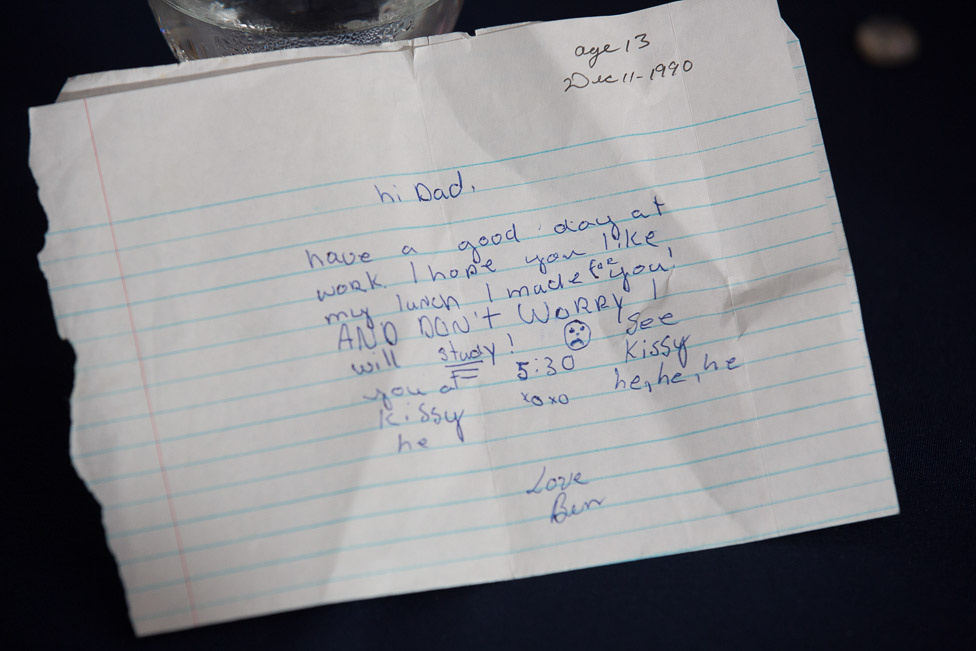 age 13
Dec 11-1990
hi Dad,
have a good day at
work. I hope you like
my lunch I made for you!
AND DON't WORRY I
will study! See
you at 5:30 Kissy
Kissy xoxo he, he, he
he
Love
Ben